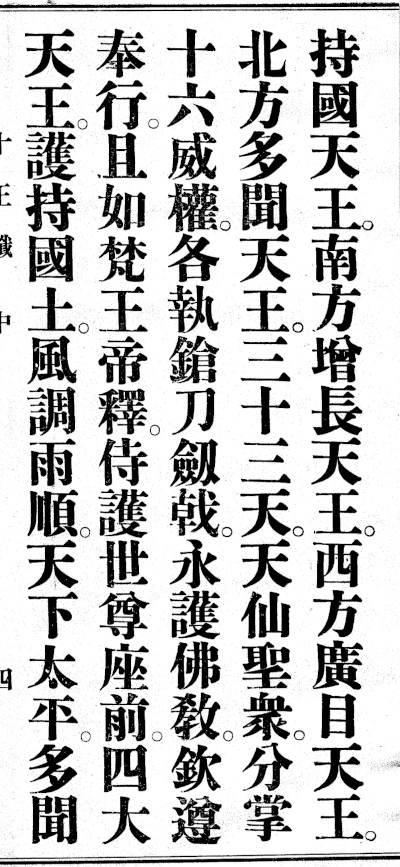 持國天王。南方增長天王。西方廣目天王。
北方多聞天王。三十三天。天仙聖衆。分掌
十六威權。各執鎗刀劔戟。永護佛教。欽遵
奉行。且如梵王帝釋。侍護世尊座前。四大
天王。護持國土。風調雨順。天下太平。多聞
十王懺 中 四